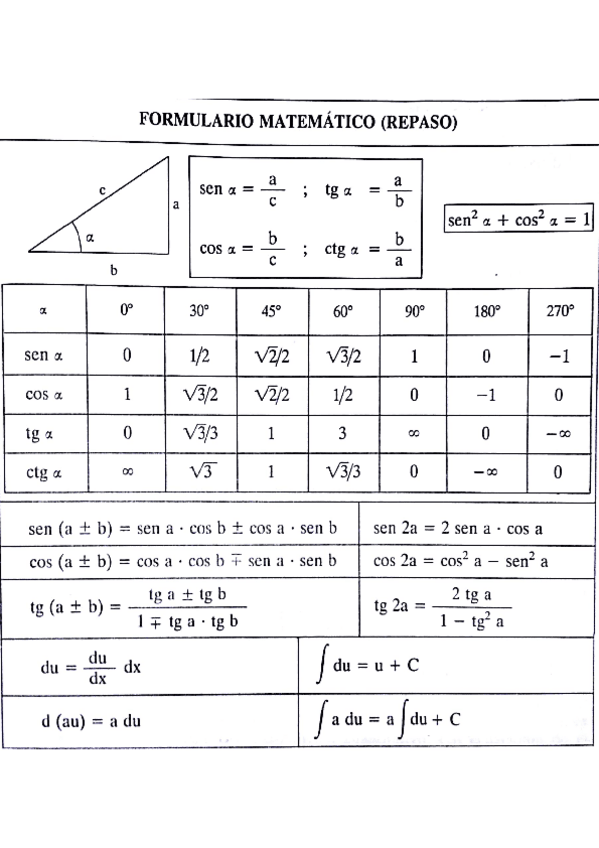 FORMULARIO MATEMÁTICO (REPASO)
c
a
α
b
sen α = a/c ; tg α = a/b
cos α = b/c ; ctg α = b/a
sen² α + cos² α = 1
α 0° 30° 45° 60° 90° 180° 270°
sen α 0 1/2 √2/2 √3/2 1 0 −1
cos α 1 √3/2 √2/2 1/2 0 −1 0
tg α 0 √3/3 1 3 ∞ 0 −∞
ctg α ∞ √3 1 √3/3 0 −∞ 0
sen (a ± b) = sen a · cos b ± cos a · sen b sen 2a = 2 sen a · cos a
cos (a ± b) = cos a · cos b ∓ sen a · sen b cos 2a = cos² a − sen² a
tg (a ± b) = (tg a ± tg b)/(1 ∓ tg a · tg b) tg 2a = (2 tg a)/(1 − tg² a)
du = du/dx dx ∫ du = u + C
d (au) = a du ∫ a du = a ∫ du + C